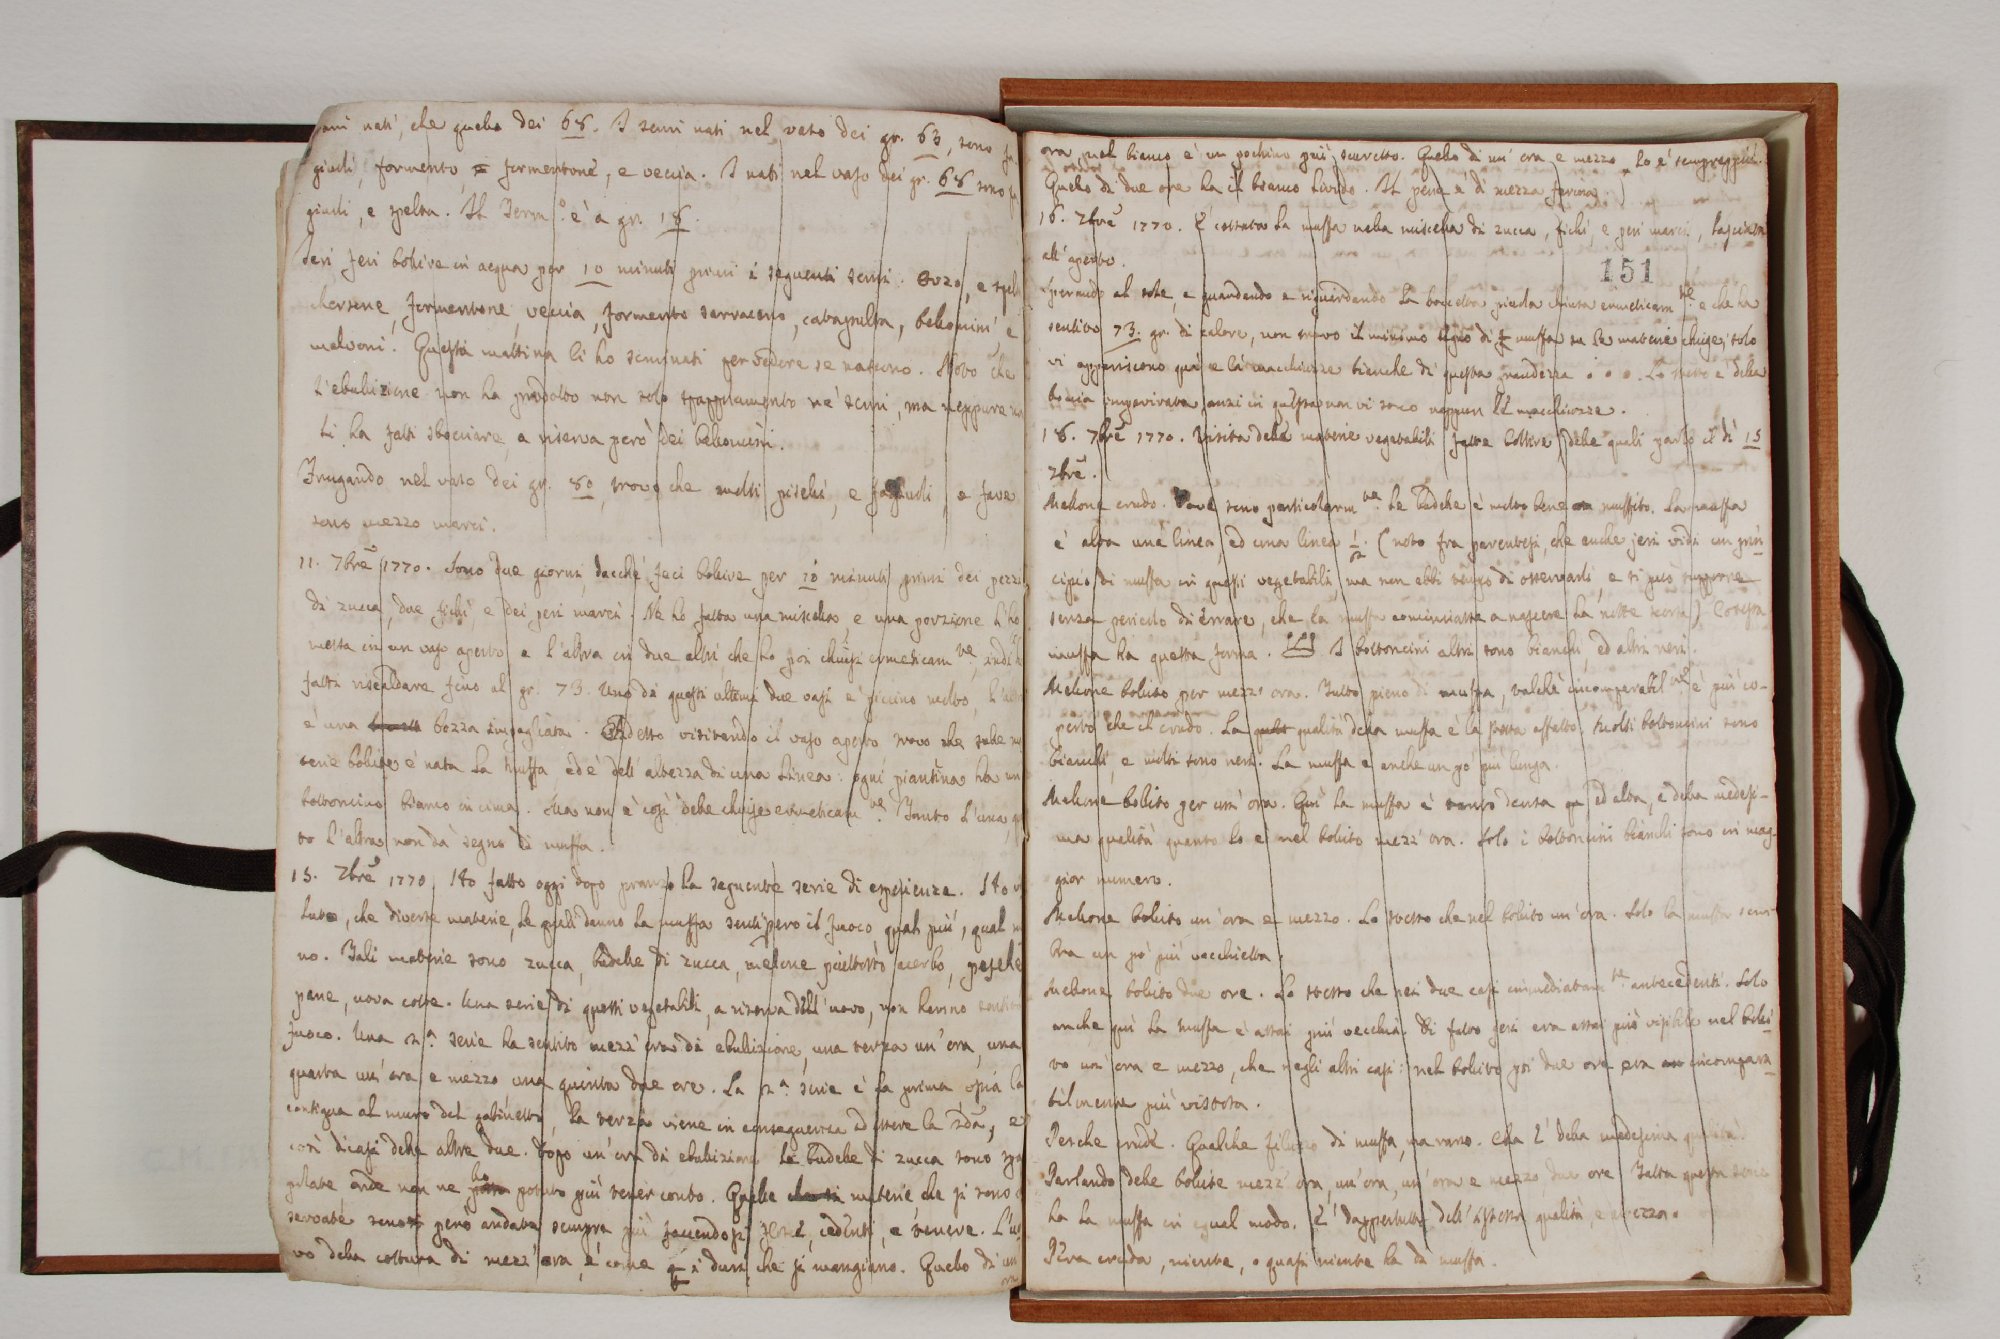 nati, che quello dei 68. I semi nati nel vaso dei gr. 63, sono
giuoli, formento, formentone, e veccia. I nati nel vaso dei gr. 68 sono
giuoli, e spelta. Il Term.o è a gr. 18.
Ieri feci bollire in acqua per 10 minuti primi i seguenti semi. Orzo, e
formentone, veccia, formento sarraceno, begliomini, e
malvoni. Questa mattina li ho seminati per vedere se nascono. Trovo che
l'ebullizione non ha prodotto non solo ne' semi, ma neppure
li ha fatti sbucciare, a riserva però dei
Frugando nel vaso dei gr. 80, trovo che molti piselli, e fagiuoli, e fave
sono mezzo marci.
11. 7bre 1770. Sono due giorni, dacchè feci bollire per 10 minuti primi dei pezzi
di zucca, due fichi, e dei peri marci. Ne ho fatta una miscella, e una porzione l'ho
messa in un vaso aperto, e l'altra in due altri che ho poi chiusi ermeticam.te, indi
fatti riscaldare fino al gr. 73. Uno di questi ultimi due vasi è piccino molto, l'altro
è una bozza impagliata. Addetto visitando il vaso aperto trovo che sulle
terie bollite è nata la muffa ed è dell'altezza di una linea: ogni piantina ha un
bottoncino bianco in cima. Ma non è così delle chiuse ermeticam.te. Tanto l'una,
to l'altra non dà segno di muffa.
15. 7bre 1770. Ho fatto oggi dopo pranzo la seguente serie di esperienze. Ho
luto, che diverse materie, le quali danno la muffa sentissero il fuoco qual più, qual
no. Tali materie sono zucca, budelle di zucca, melone piuttosto acerbo, pesche
pane, uova cotte. Una serie di questi vegetabili, a riserva dell'uovo, non hanno sentito
fuoco. Una 2.a serie ha sentito mezz'ora di ebullizione, una terza un'ora, una
quarta un'ora e mezzo una quinta due ore. La 2.a serie è la prima, ossia la
contigua al muro del gabinetto, la terza viene in conseguenza ad essere la 2da, e
così dicasi delle altre due. Dopo un'ora di ebullizione le budelle di zucca sono
onde non ne ho potuto più tener conto. Quelle materie che si sono
servate sonosi però andate sempre più facendosi cedenti, e tenere. L'uo
vo della cottura di mezz'ora, è come i duri, che si mangiano. Quello di un
ora, nel bianco è un pochino più scuretto. Quello di un'ora e mezzo lo è sempreppiù.
Quello di due ore ha il bianco livido. Il pane è di mezza farina.
16. 7bre 1770. È costata la muffa nella miscella di zucca, fichi, e peri marci, lasciata
all'aperto.
151
al sole, e guardando e riguardando la boccetta piccola chiusa ermeticam.te e che ha
sentito 73. gr. di calore, non trovo il minimo segno di muffa su le materie chiuse, solo
vi appariscono quà e là macchiuzze bianche di questa grandezza . . . Lo stesso è della
boccia impagliata, anzi in questa non vi sono neppur le macchiuzze.
18. 7bre 1770. Visita delle materie vegetabili fatte bollire, delle quali parlo il dì 15
7bre.
Melone crudo. Dove sono particolarm.te le budelle è molto bene muffito. La muffa
è alta una linea, ed una linea 1/2. (noto fra parentesi, che anche jeri vidi un prin
cipio di muffa in questi vegetabili, ma non ebbi tempo di osservarli, e si può supporre
senza pericolo di errare, che la muffa cominciasse a nascere la notte scorsa). Cotesta
muffa ha questa forma. I bottoncini altri sono bianchi, ed altri neri.
Melone bollito per mezz'ora. Tutto pieno di muffa, talchè incomparabil.te è più co-
perto che il crudo. La qualità della muffa è la stessa affatto. Molti bottoncini sono
bianchi, e molti sono neri. La muffa è anche un po più lunga.
Melone bollito per un'ora. Qui la muffa è tanto densa ed alta, e della medesi-
ma qualità quanto lo è nel bollito mezz'ora. Solo i bottoncini bianchi sono in mag-
gior numero.
Melone bollito un'ora e mezzo. Lo stesso che nel bollito un'ora. Solo la muffa sem-
bra un pò più vecchietta.
Melone bollito due ore. Lo stesso che nei due casi immediatam.te antecedenti. Solo
anche qui la muffa è assai più vecchia. Di fatto jeri era assai più visibile nel bolli
to un'ora e mezzo, che negli altri casi: nel bollito poi due ore era incompara
bilmente più vistosa.
Pesche crude. Qualche filuzzo di muffa, ma raro. Ella è della medesima qualità.
Parlando delle bollite mezz'ora, un'ora, un'ora e mezzo, due ore. Tutta questa serie
ha la muffa in egual modo. È dappertutto dell'istessa qualità, e altezza.
Pera cruda, niente, o quasi niente ha di muffa.